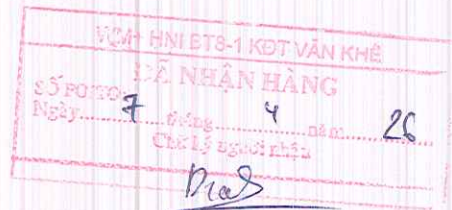 VCM+ HNI BT8-1 KĐT VĂN KHÊ
ĐÃ NHẬN HÀNG
Ngày 7 tháng 4 năm 26
Chữ ký người nhận